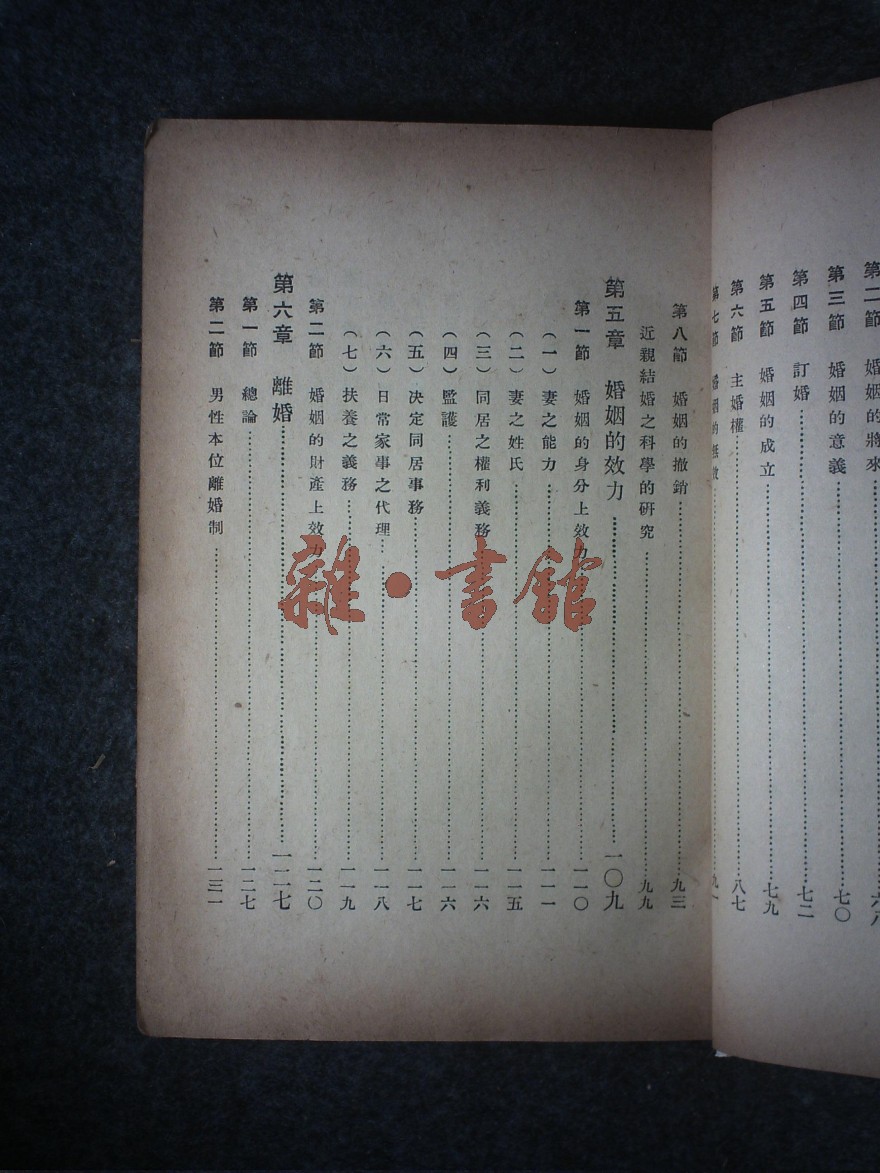 第二節 婚姻的將來 六八
第三節 婚姻的意義 七〇
第四節 訂婚 七二
第五節 婚姻的成立 七九
第六節 主婚權 八七
第七節 婚姻的無效 九一
第八節 婚姻的撤銷 九三
近親結婚之科學的研究 九九
第五章 婚姻的效力 一〇九
第一節 婚姻的身分上效力 一一〇
(一) 妻之能力 一一一
(二) 妻之姓氏 一一五
(三) 同居之權利義務 一一六
(四) 監護 一一六
(五) 决定同居事務 一一七
(六) 日常家事之代理 一一八
(七) 扶養之義務 一一九
第二節 婚姻的財產上效力 一二〇
第六章 離婚 一二七
第一節 總論 一二七
第二節 男性本位離婚制 一三一
雜·書館